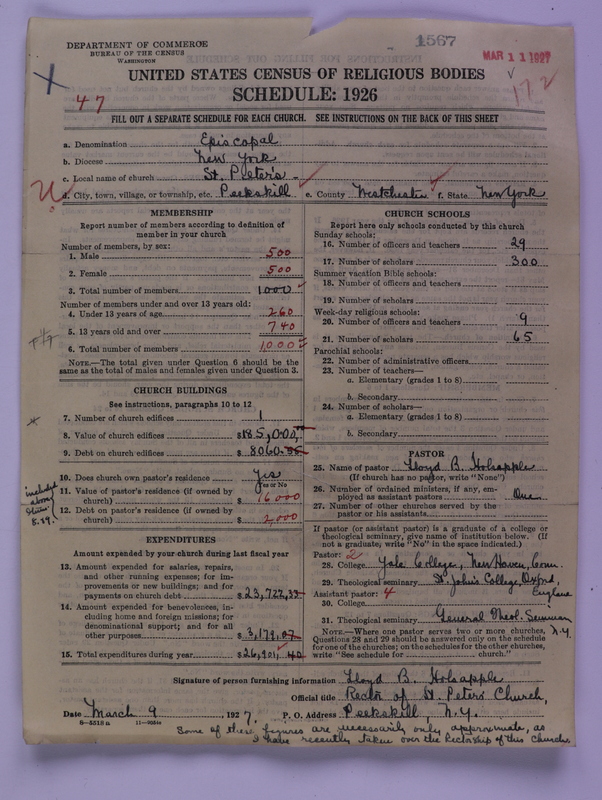 DEPARTMENT OF COMMERCE
BUREAU OF THE CENSUS
WASHINGTON
1567
MAR 11 1927
172
47
UNITED STATES CENSUS OF RELIGIOUS BODIES
SCHEDULE: 1926
FILL OUT A SEPARATE SCHEDULE FOR EACH CHURCH. SEE INSTRUCTIONS ON THE BACK OF THIS SHEET
a. Denomination Episcopal
b. Diocese New York
c. Local name of church St. Peter's
d. City, town, village, or township, etc. Peekskill e. County Westchester f. State New York
MEMBERSHIP
Report number of members according to definition of
member in your church
Number of members, by sex:
1. Male 500
2. Female 500
3. Total number of members 1000
Number of members under and over 13 years old:
4. Under 13 years of age 260
5. 13 years old and over 740
6. Total number of members 1,000
NOTE.—The total given under Question 6 should be the
same as the total of males and females given under Question 3.
CHURCH BUILDINGS
See instructions, paragraphs 10 to 12
7. Number of church edifices 1
8. Value of church edifices $185,000
9. Debt on church edifices $8060.
10. Does church own pastor's residence? Yes
Yes or No
11. Value of pastor's residence (if owned by
church) $16000
12. Debt on pastor's residence (if owned by
church) $2,000
included
above
8.+9.
EXPENDITURES
Amount expended by your church during last fiscal year
13. Amount expended for salaries, repairs,
and other running expenses; for im-
provements or new buildings; and for
payments on church debt $23,722,33
14. Amount expended for benevolences, in-
cluding home and foreign missions; for
denominational support; and for all
other purposes $3,179.07
15. Total expenditures during year $26,901,40
CHURCH SCHOOLS
Report here only schools conducted by this church
Sunday schools:
16. Number of officers and teachers 29
17. Number of scholars 300
Summer vacation Bible schools:
18. Number of officers and teachers
19. Number of scholars
Week-day religious schools:
20. Number of officers and teachers 9
21. Number of scholars 65
Parochial schools:
22. Number of administrative officers
23. Number of teachers—
a. Elementary (grades 1 to 8)
b. Secondary
24. Number of scholars—
a. Elementary (grades 1 to 8)
b. Secondary
PASTOR
25. Name of pastor Lloyd B. Holsapple
(If church has no pastor, write "None")
26. Number of ordained ministers, if any, em-
ployed as assistant pastors One
27. Number of other churches served by the
pastor or his assistants
If pastor (or assistant pastor) is a graduate of a college or
theological seminary, give name of institution below. (If
not a graduate, write "No" in the space indicated.)
Pastor: 2
28. College Yale College, New Haven, Conn.
29. Theological seminary St. John's College, Oxford,
England
Assistant pastor: 4
30. College
31. Theological seminary General Theol. Seminary
N.Y.
NOTE.—Where one pastor serves two or more churches,
Questions 28 and 29 should be answered only on the schedule
for one of the churches; on the schedules for the other churches,
write "See schedule for church."
Signature of person furnishing information Lloyd B. Holsapple
Official title Rector of St. Peter's Church,
Date March 9, 1927. P. O. Address Peekskill, N.Y.
8—5518a 11—9054e
Some of these figures are necessarily only approximate, as
I have recently taken over the Rectorship of this Church